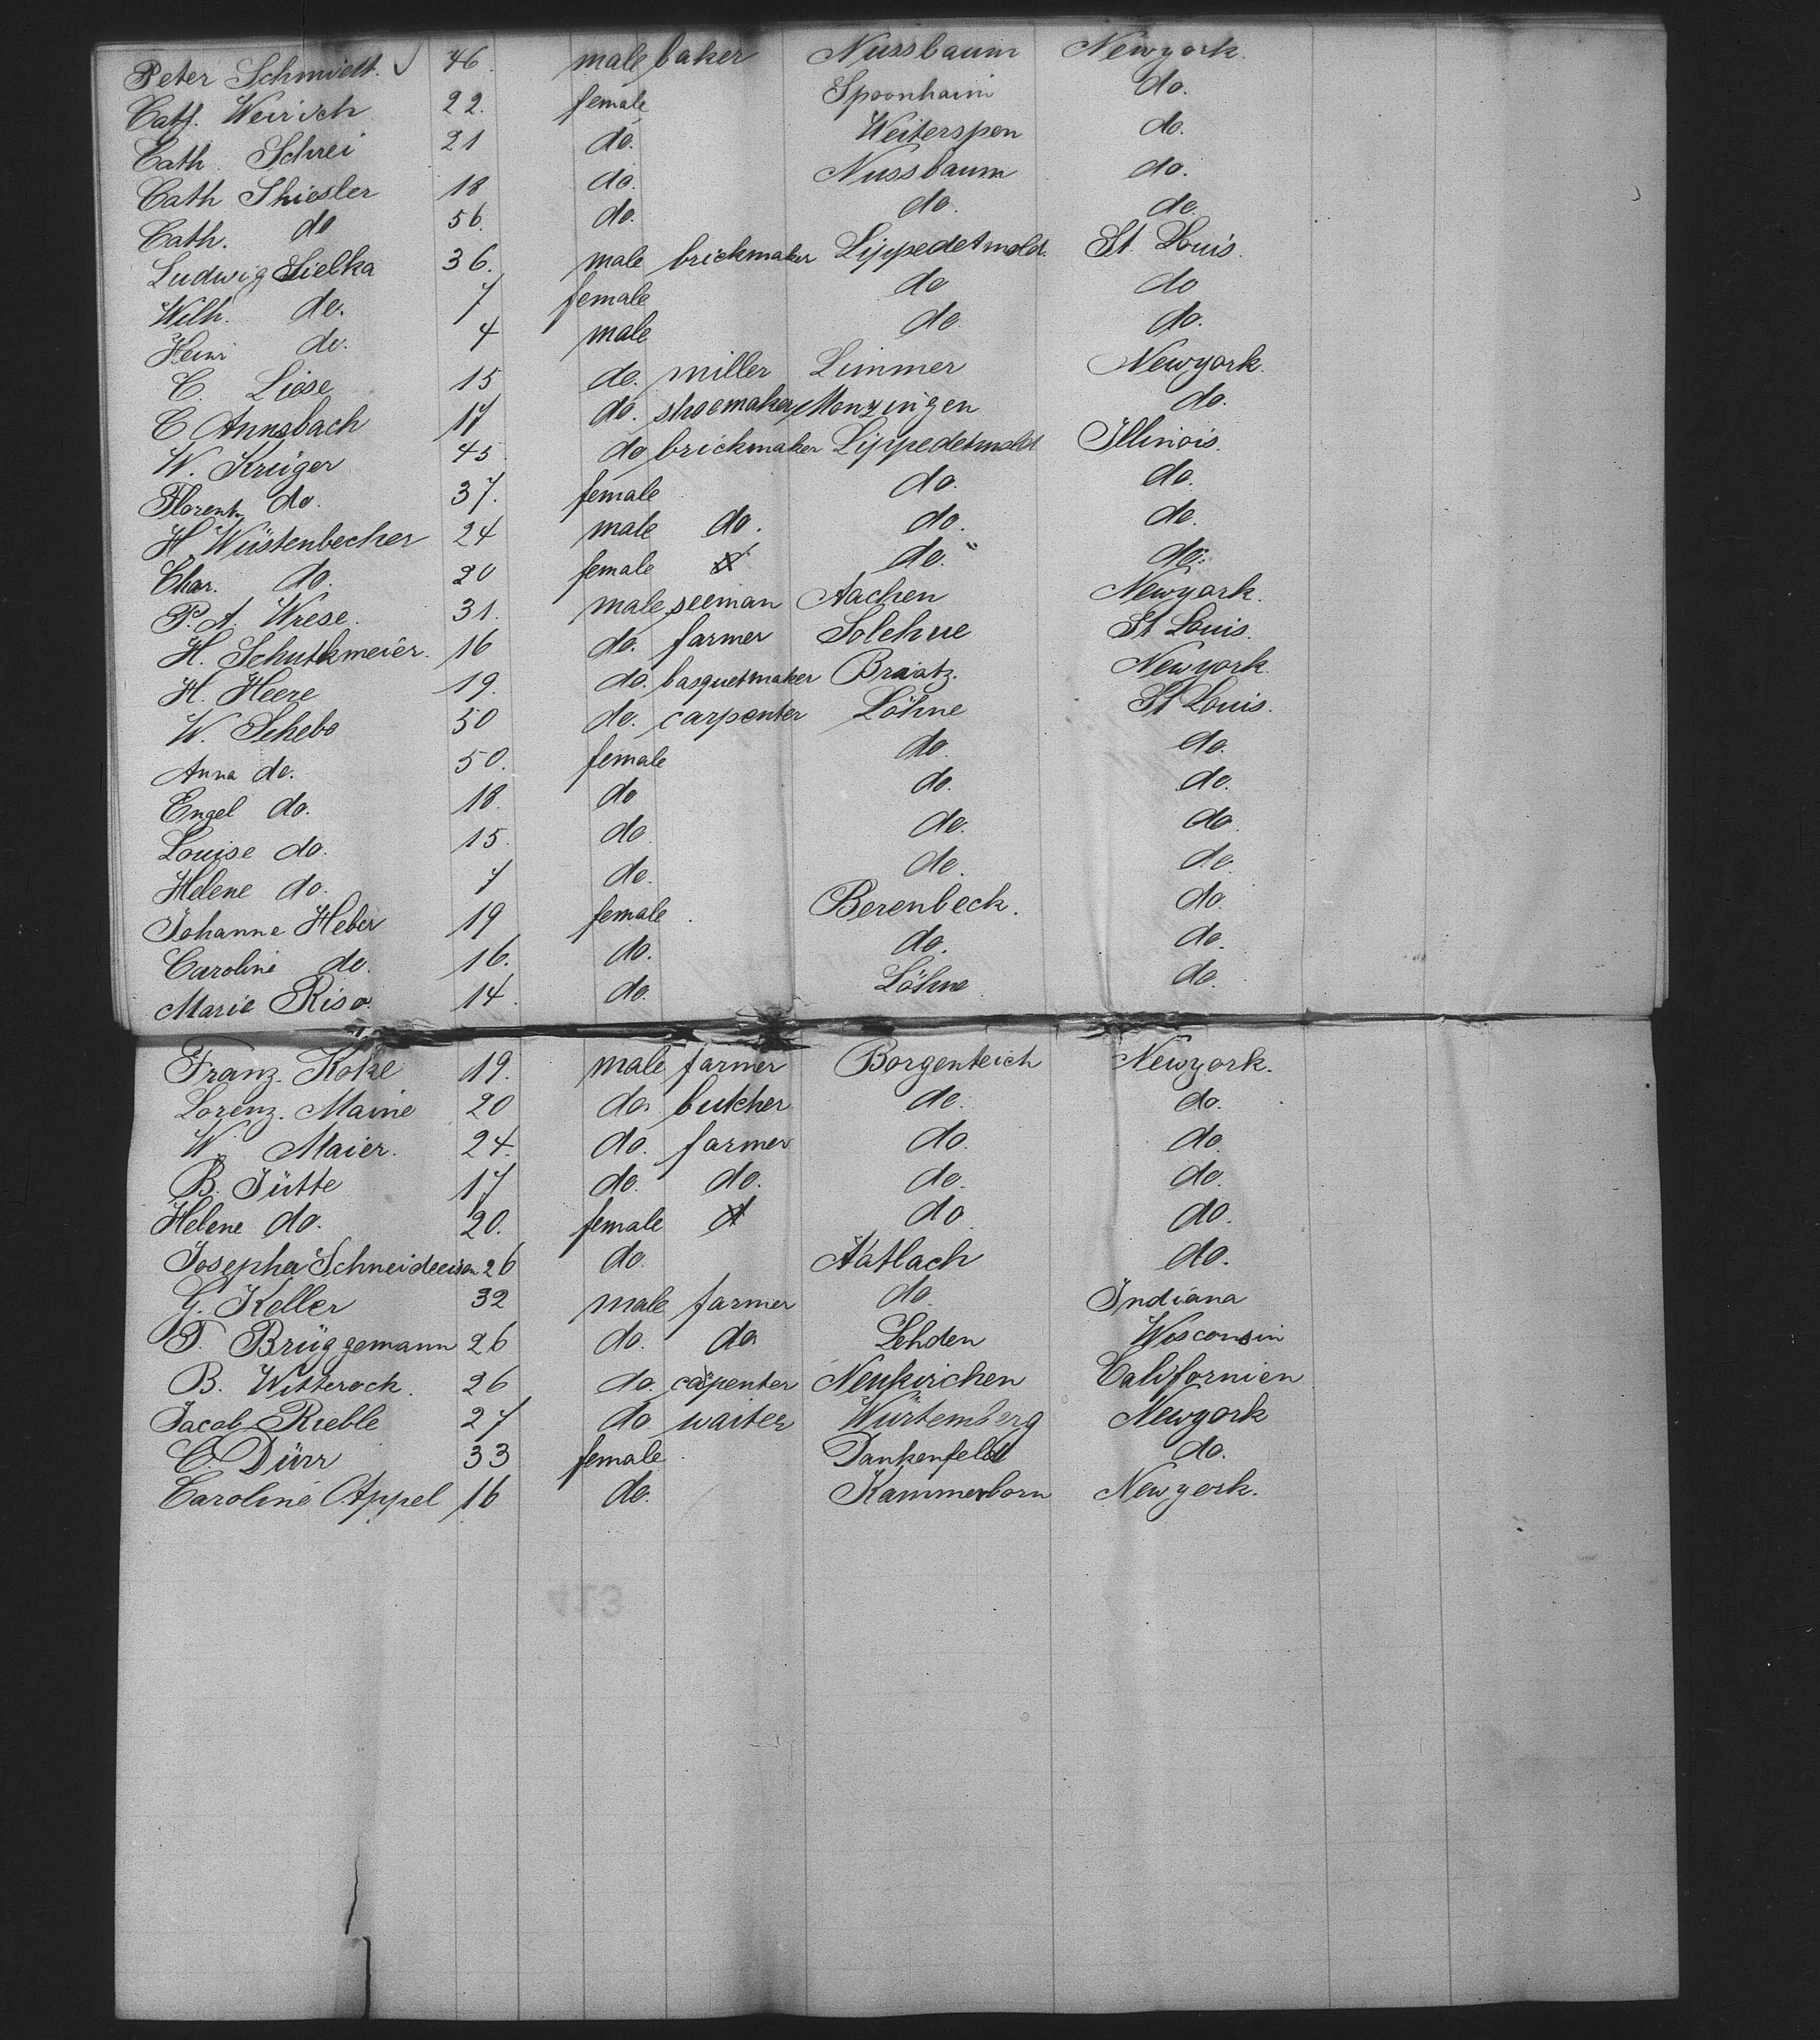 Peter Schmidt. 46. male baker Nussbaum Newyork.
Cath. Weirich 22. female Spoonhaim do.
Cath. Schrei 21 do. Weiterspen do.
Cath Shiesler 18 do. Nussbaum do.
Cath. do 56. do. do. do.
Ludwig Sielka 36. male brickmaker Lippedetmold. St. Louis.
Wilh. do. 7 female do do
Heinr do. 4 male do. do.
C. Liese 15 do. miller Limmer Newyork.
C Annsbach 17 do. shoemaker Monzingen do.
W. Krüger 45 do brickmaker Lippedetmold Illinois.
Florent. do. 37. female do. do.
H. Wüstenbecher 24 male do. do. do.
Char. do. 20 female do. do.
P. A. Wrese. 31. male seeman Aachen Newyork.
H. Schutkmeier. 16 do. farmer Solehue St Louis.
H. Heere 19. do. basquetmaker Braatz. Newyork.
W. Schebo 50 do. carpenter Löhne St Louis.
Anna do. 50. female do. do.
Engel do. 18. do do. do.
Louise do. 15. do do. do.
Helene do. 7 do. do. do.
Johanne Heber 19 female Berenbeck. do.
Caroline do. 16. do. do. do.
Marie Riso. 14. do. Löhne do.
Franz. Koke 19. male farmer Borgenteich Newyork.
Lorenz. Maine 20 do. butcher do. do.
W. Maier. 24. do. farmer do. do.
B. Jütte 17 do. do. do. do.
Helene do. 20. female do. do.
Josepha 26 do. Hatlach do.
G. Keller 32 male farmer do. Indiana
F. Brüggemann 26 do. do. Lehden Wisconsin
B. Witterock. 26 do. carpenter Neukirchen Californien
Jacob Rieble 27 do waiter Würtemberg Newyork
C. Dürr 33 female Dankenfeld do.
Caroline Appel 16 do. Kammerborn Newyork.